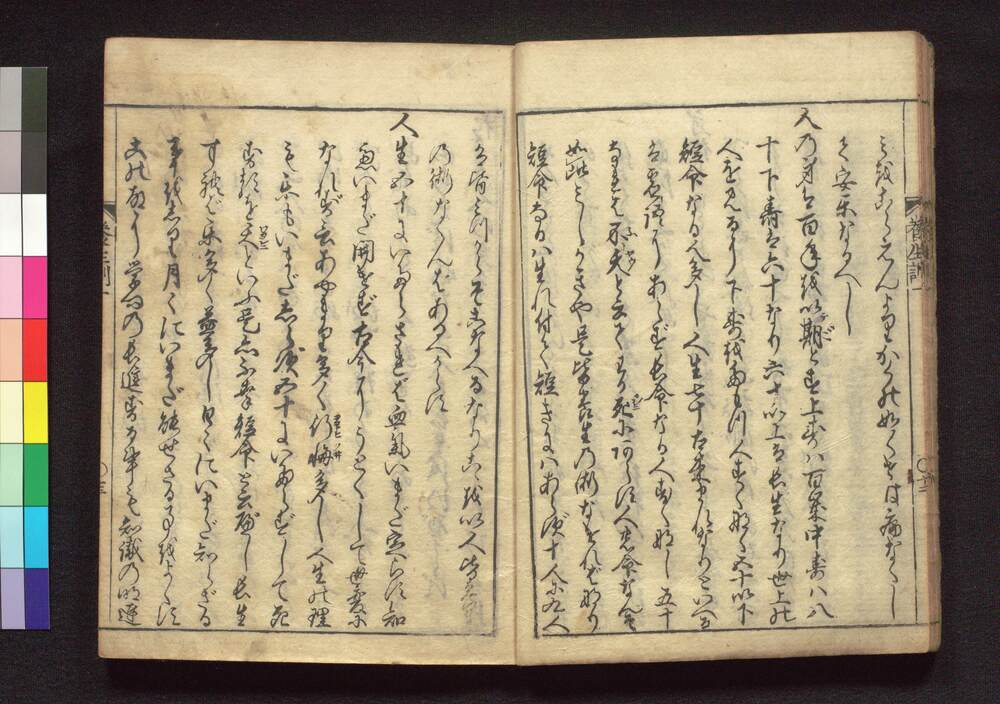 こゝろえんよりかくの如くすれは病なくし
て安楽なるへし
人の身は百年を以期とす上寿ハ百歳中寿ハ八
十下寿は六十なり六十以上は長生なり世上の
人を見るに下寿をたもつ人すくなく五十以下
短命なる人多し人生七十古来まれなりといへる
は虚語にあらず長命なる人すくなし五十
なれば不夭と云てわか死にあらず人の命なんぞ
如此みじかきや是皆養生の術なければなり
短命なるハ生れ付て短きにハあらず十人に九人
は皆みづからそこなへるなりこゝを以人皆養生
の術なくんばあるへからず
人生五十にいたらざれば血気いまだ定らず知
恵いまだ開けず古今にうとくして世変に
なれず言あやまり多く行悔多し人生の理
も楽もいまだしらず五十にいたらずして死
するを夭といふ是亦不幸短命と云べし長生
すれば楽多く益多し日々にいまだ知らざる
事をしり月々にいまだ能せざる事をよくす
この故に学問の長進する事も知識の明達
養生訓一